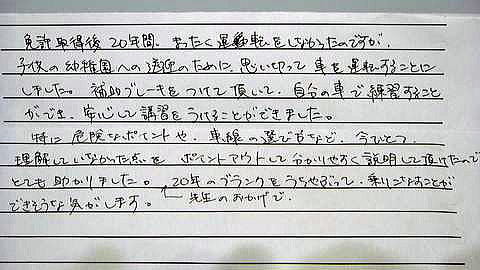 免許取得後20年間、まったく運転をしなかったのですが、
子供の幼稚園への送迎のために、思い切って車を運転することに
しました。補助ブレーキをつけて頂いて、自分の車で練習すること
ができ、安心して講習をうけることができました。
特に危険なポイントや、車線の選び方など、今ひとつ
理解していなかった点をポイントアウトして分かりやすく説明して頂けたので
とても助かりました。20年のブランクをうちやぶって、乗りこなすことが
できそうな気がします。
先生のおかげで、